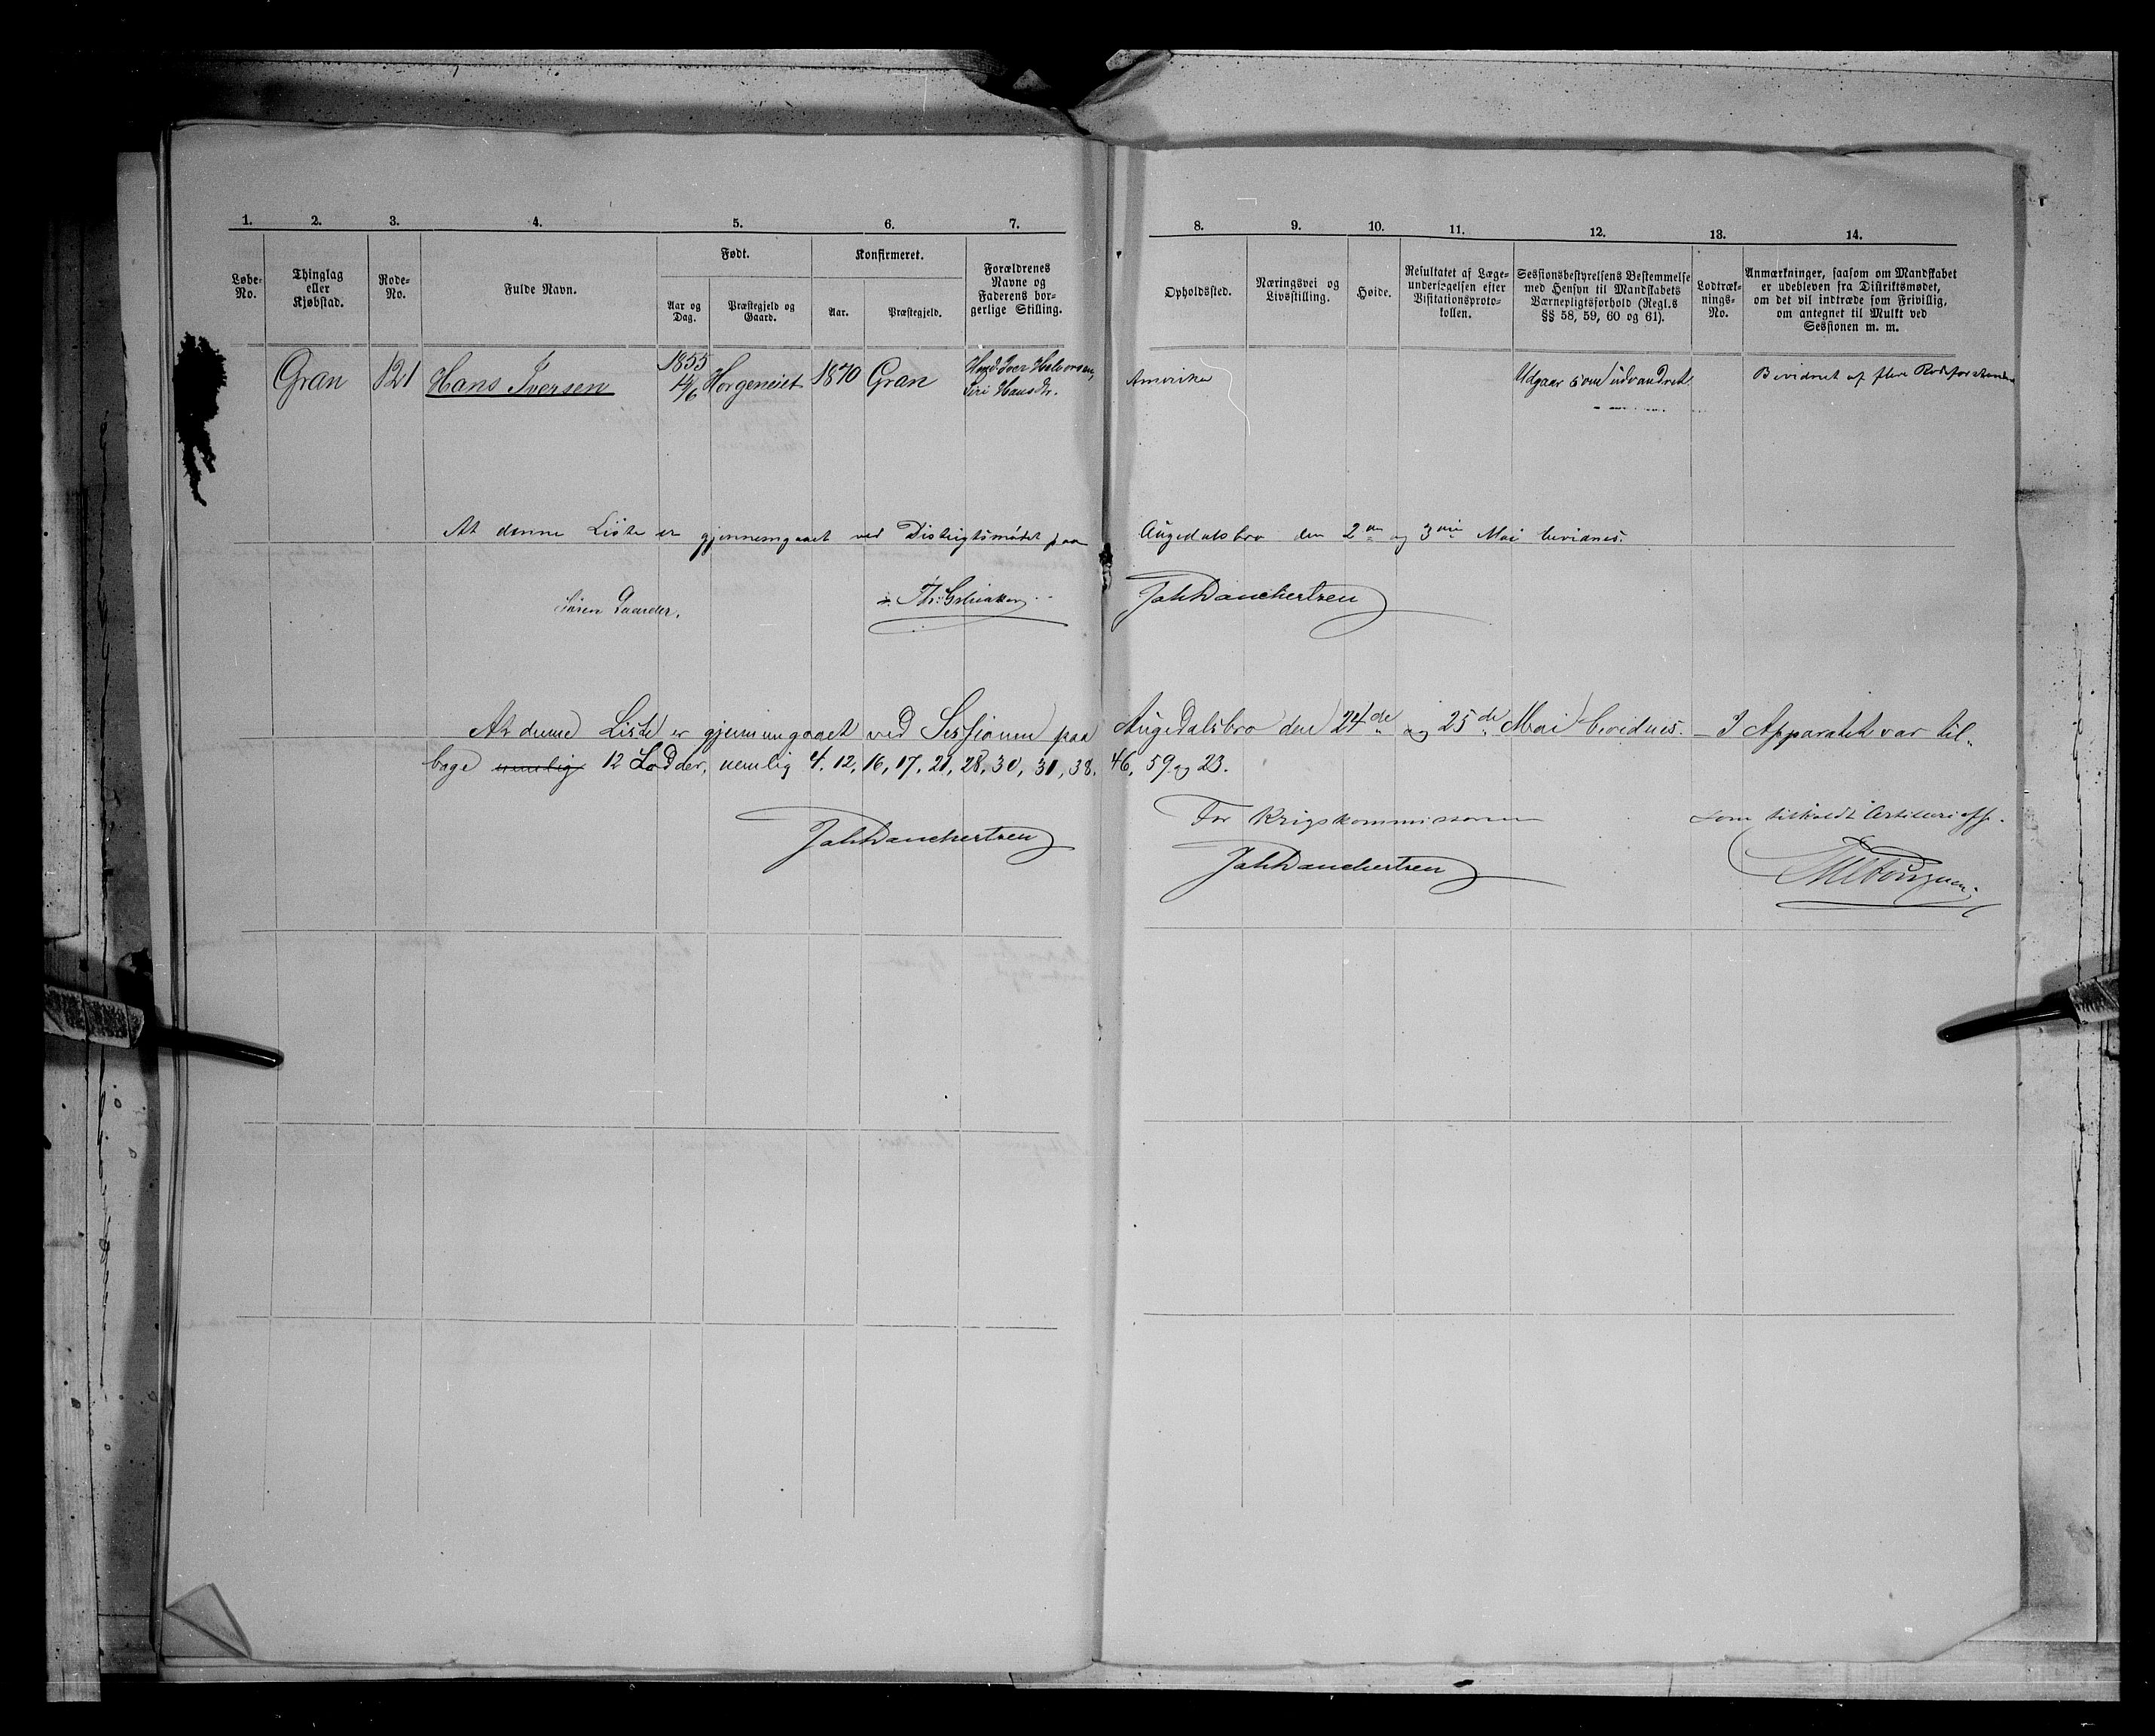 1. 2. 3. 4. 5. 6. 7. 8. 9. 10. 11. 12. 13. 14.
Løbe-
No.
Thinglag
eller
Kjøbstad.
Rode-
No.
Fulde Navn.
Født.
Aar og
Dag.
Præstegjeld og
Gaard.
Konfirmeret.
Aar.
Præstegjeld.
Forældrenes
Navne og
Faderens bor-
gerlige Stilling.
Opholdssted.
Næringsvei og
Livsstilling.
Høide.
Resultatet af Læge-
undersøgelsen efter
Visitationsproto-
kollen.
Sessionsbestyrelsens Bestemmelse
med Hensyn til Mandskabets
Værnepligtsforhold (Regl.s
§§ 58, 59, 60 og 61).
Lodtræk-
nings-
No.
Anmærkninger, saasom om Mandskabet
er udebleven fra Distriktsmødet,
om det vil indtræde som Frivillig,
om antegnet til Mulkt ved
Sessionen m. m.
Gran 121 Hans Iversen 1855 Horgeneiet 1870 Gran Iver Halvorsen, Siri Hansdr. Amerika Udgaar som udvandret. Bevidnet af flere
At denne Liste er gjennemgaaet ved Distrigtsmødet paa Augedalsbro den 2 og 3 Mai bevidnes.
Søren Gaarder.
Joh Danchertsen
At denne Liste er gjennemgaaet ved Sessionen paa Augedalsbro den 24de og 25de Mai bevidnes. – I Apparatet var til-
bage nemlig 12 Lodder, nemlig 4, 12, 16, 17, 21, 28, 30, 31, 38, 46, 59 og 23.
For Krigskommissæren
Som tilkaldt Artilleri off.
Joh Danchertsen
Joh Danchertsen